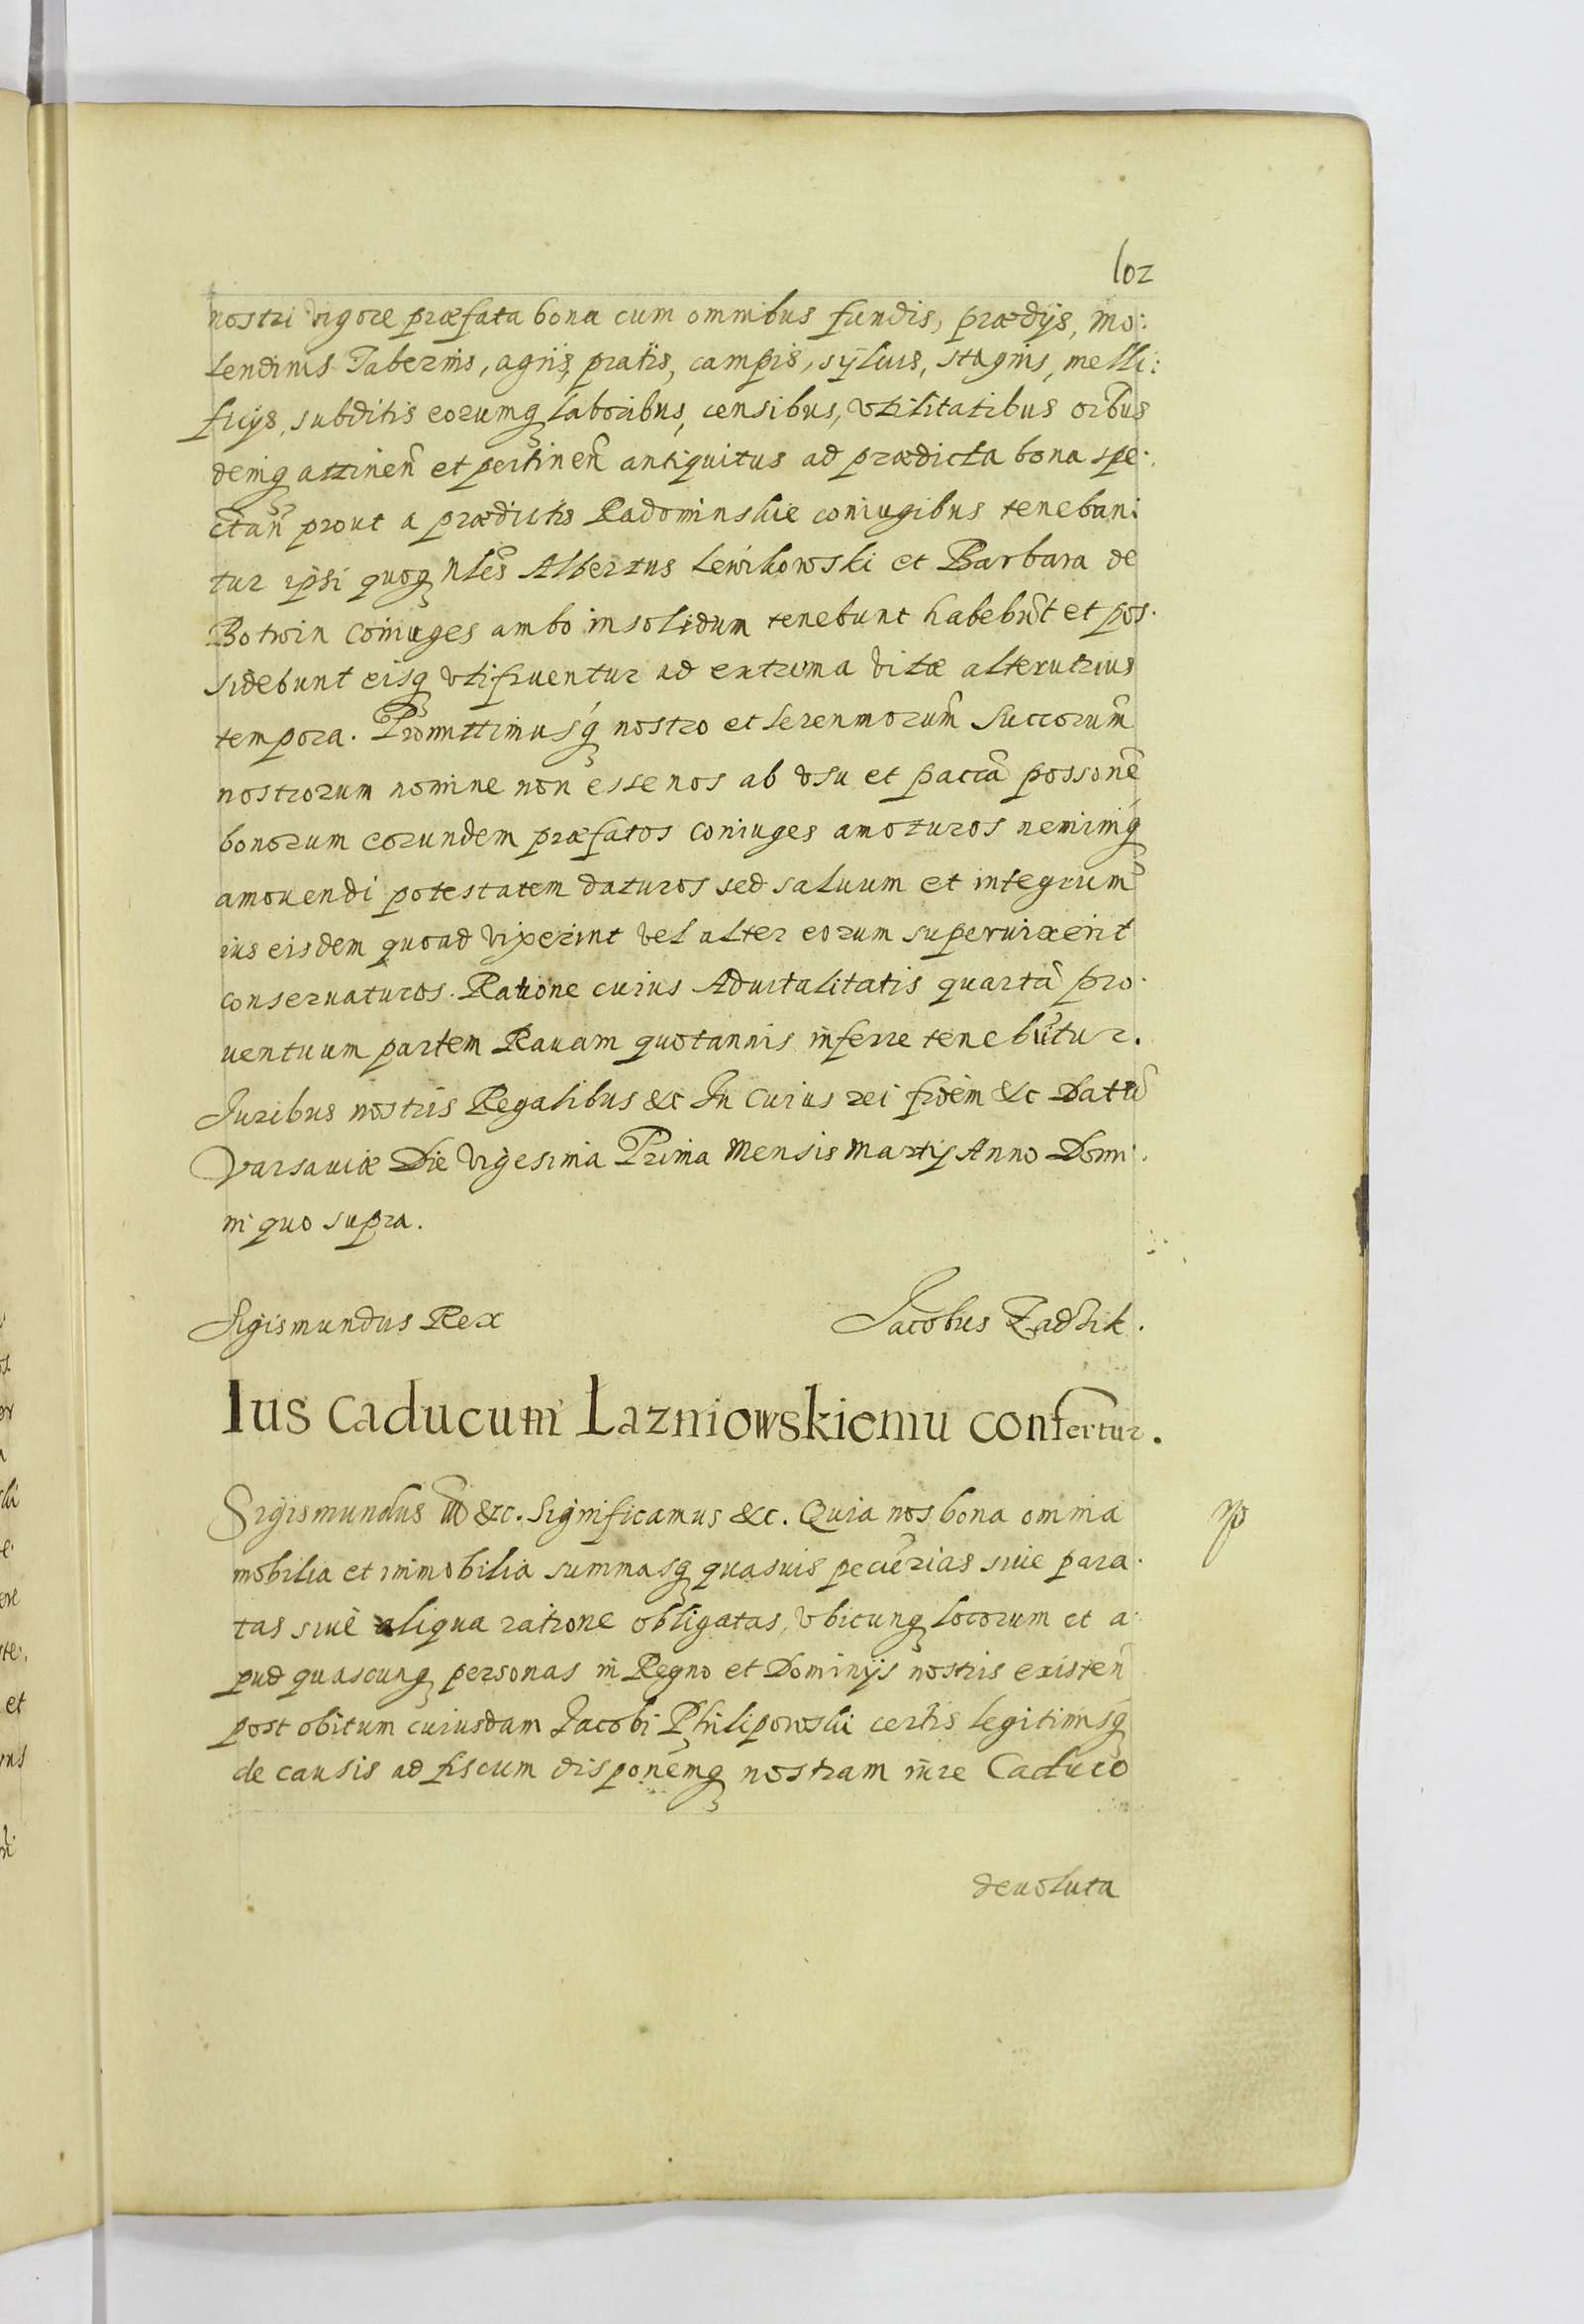 102
nostri vigore præfata bona cum omnibus fundis, prædijs, mo:
lendinis Tabernis, agris, pratis, campis, sylvis, stagnis, melli:
ficijs, subditis eorumq laboribus, censibus, vtilitatibus oĩbus
deniq attineñ et pertineñ antiquitus ad prædicta bona spe:
ctañ prout a prædictis Radominskie coniugibus teneban:
tur ipsi quoq Nles Albertus Lewikowski et Barbara de
Botwin coniuges ambo insolidum tenebunt habebũt et pos:
sidebunt eisq vtifruentur ad extrema vitæ alterutrius
tempora. Promittimusq nostro et Serenmorum Succorum
nostrorum nomine non esse nos ab vsu et paccã possone
bonorum eorundem præfatos coniuges amoturos neminiq
amouendi potestatem daturos sed saluum et integrum
ius eisdem quoad vixerint vel alter eorum superuixerit
conseruaturos. Ratione cuius Aduitalitatis quartã pro:
uentuum partem Rauam quotannis inferre tenebũtur.
Juribus nostris Regalibus &c In cuius rei fidem &c Datũ
Varsauiæ Die Vigesima Prima Mensis Martij Anno Domi:
ni quo supra.
Sigismundus Rex Jacobus Zadzik.
Ius Caducum Lazniowskiemu confertur.
Sigismundus III &c. Significamus &c. Quia nos bona omnia
mobilia et immobilia summasq quasuis pecũrias siue para:
tas siue aliqua ratione obligatas, vbicunq locorum et a:
pud quascunq personas in Regno et Dominijs nostris existeñ
post obitum cuiusdam Jacobi Philipowski certis legitimisq
de causis ad fiscum disponemq nostram iure Caduco
deuoluta